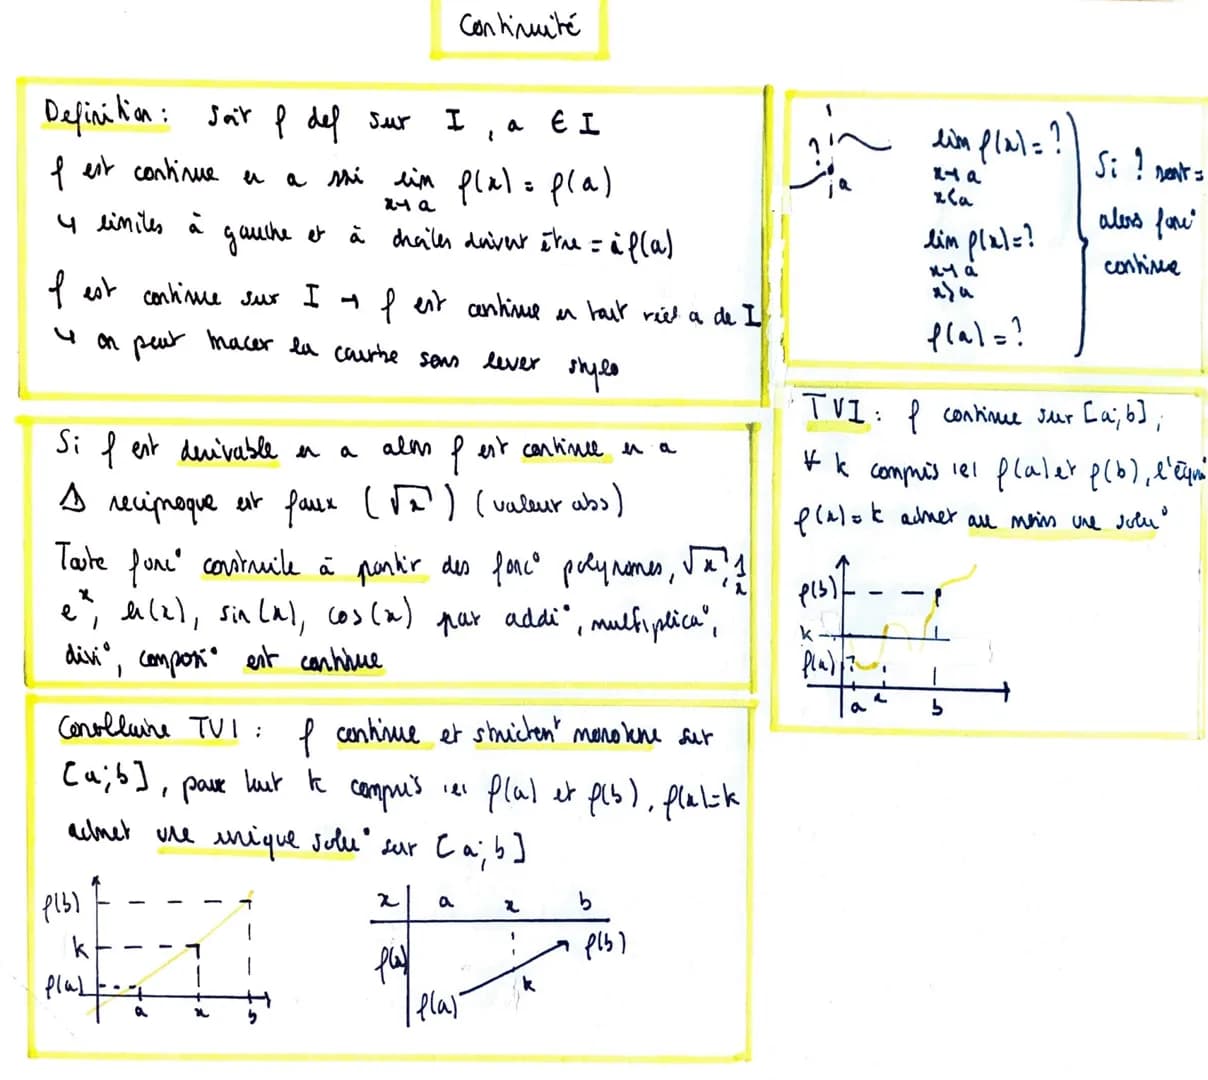 Continuité
Definition : Soit f def sur I , a ∈ I
f est continue en a ssi lim f(x) = f(a)
x→a
↳ limites à gauche et à droites doivent être = à f(a)
f est continue sur I → f est continue en tout réel a de I
↳ on peut tracer la courbe sans lever stylo
a
lim f(x) = ?
x→a
x<a
lim f(x) = ?
x→a
x>a
f(a) = ?
Si ? sont =
alors fonc°
continue
Si f est derivable en a alors f est continue en a
⚠ reciproque est faux (√x) (valeur abs)
Toute fonc° construite à partir des fonc° polynomes, √x, 1/x
e^x, ln(x), sin(x), cos(x) par addi°, multiplica°,
divi°, composi° est continue
TVI : f continue sur [a;b],
∀ k compris ie f(a) et f(b), l'équa°
f(x) = k admet au moins une solu°
f(b)
k
f(a)
a x b
Corollaire TVI : f continue et stricten^t monotone sur
[a;b], pour tout k compris ie f(a) et f(b), f(x)=k
admet une unique solu° sur [a;b]
f(b)
k
f(a)
a x b
x a x b
f(x) f(b)
k
f(a)